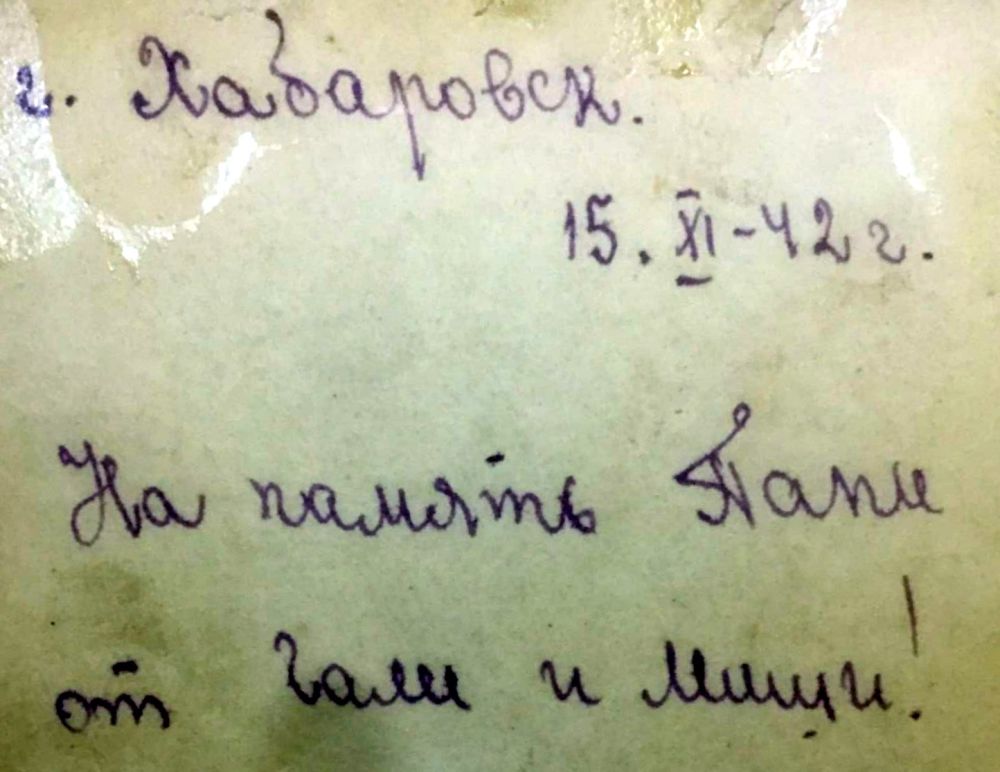 г. Хабаровск.
15. XI-42 г.
На память
от Гали и Миши!